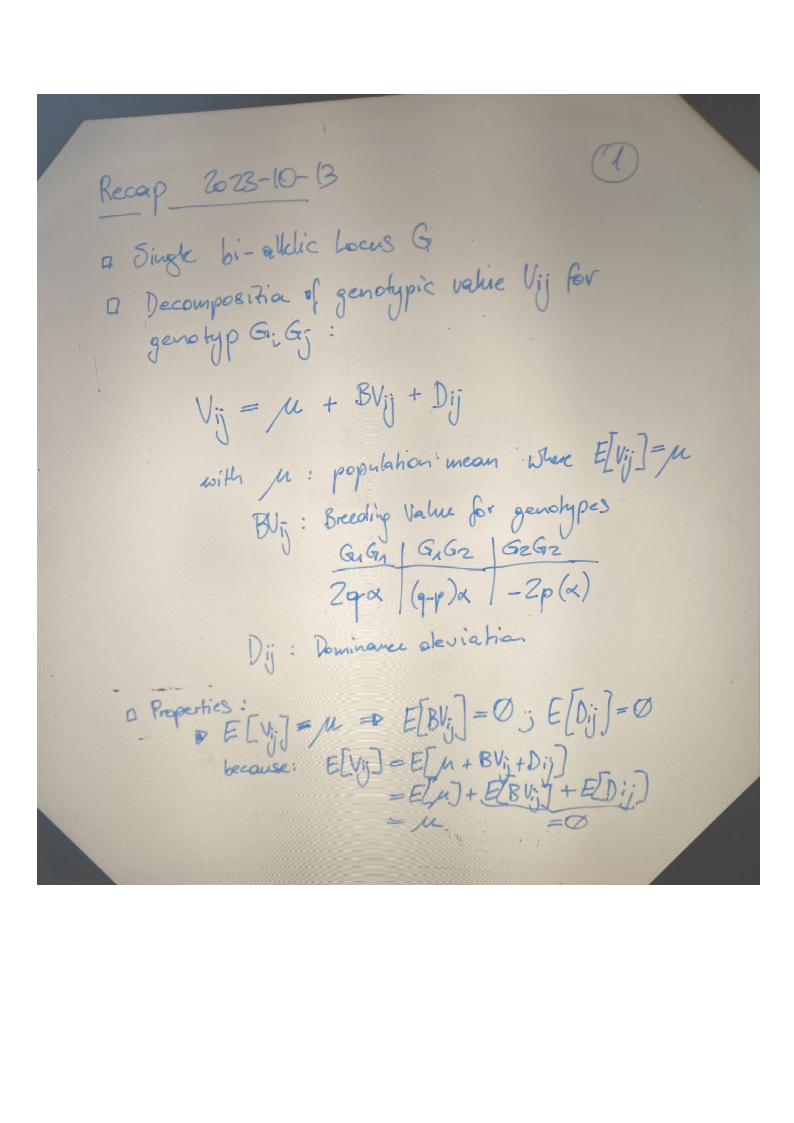 Recap 2023-10-13
1
□ Single bi-allelic Locus G
□ Decomposition of genotypic value Vij for
genotyp GiGj :
Vij = μ + BVij + Dij
with μ : population mean where E[Vij] = μ
BVij : Breeding Value for genotypes
G1G1 | G1G2 | G2G2
2qα | (q-p)α | -2p(α)
Dij : Dominance deviation
□ Properties :
▸ E[Vij] = μ ⇒ E[BVij] = ∅ ; E[Dij] = ∅
because: E[Vij] = E[μ + BVij + Dij]
= E[μ] + E[BVij] + E[Dij]
= μ = ∅